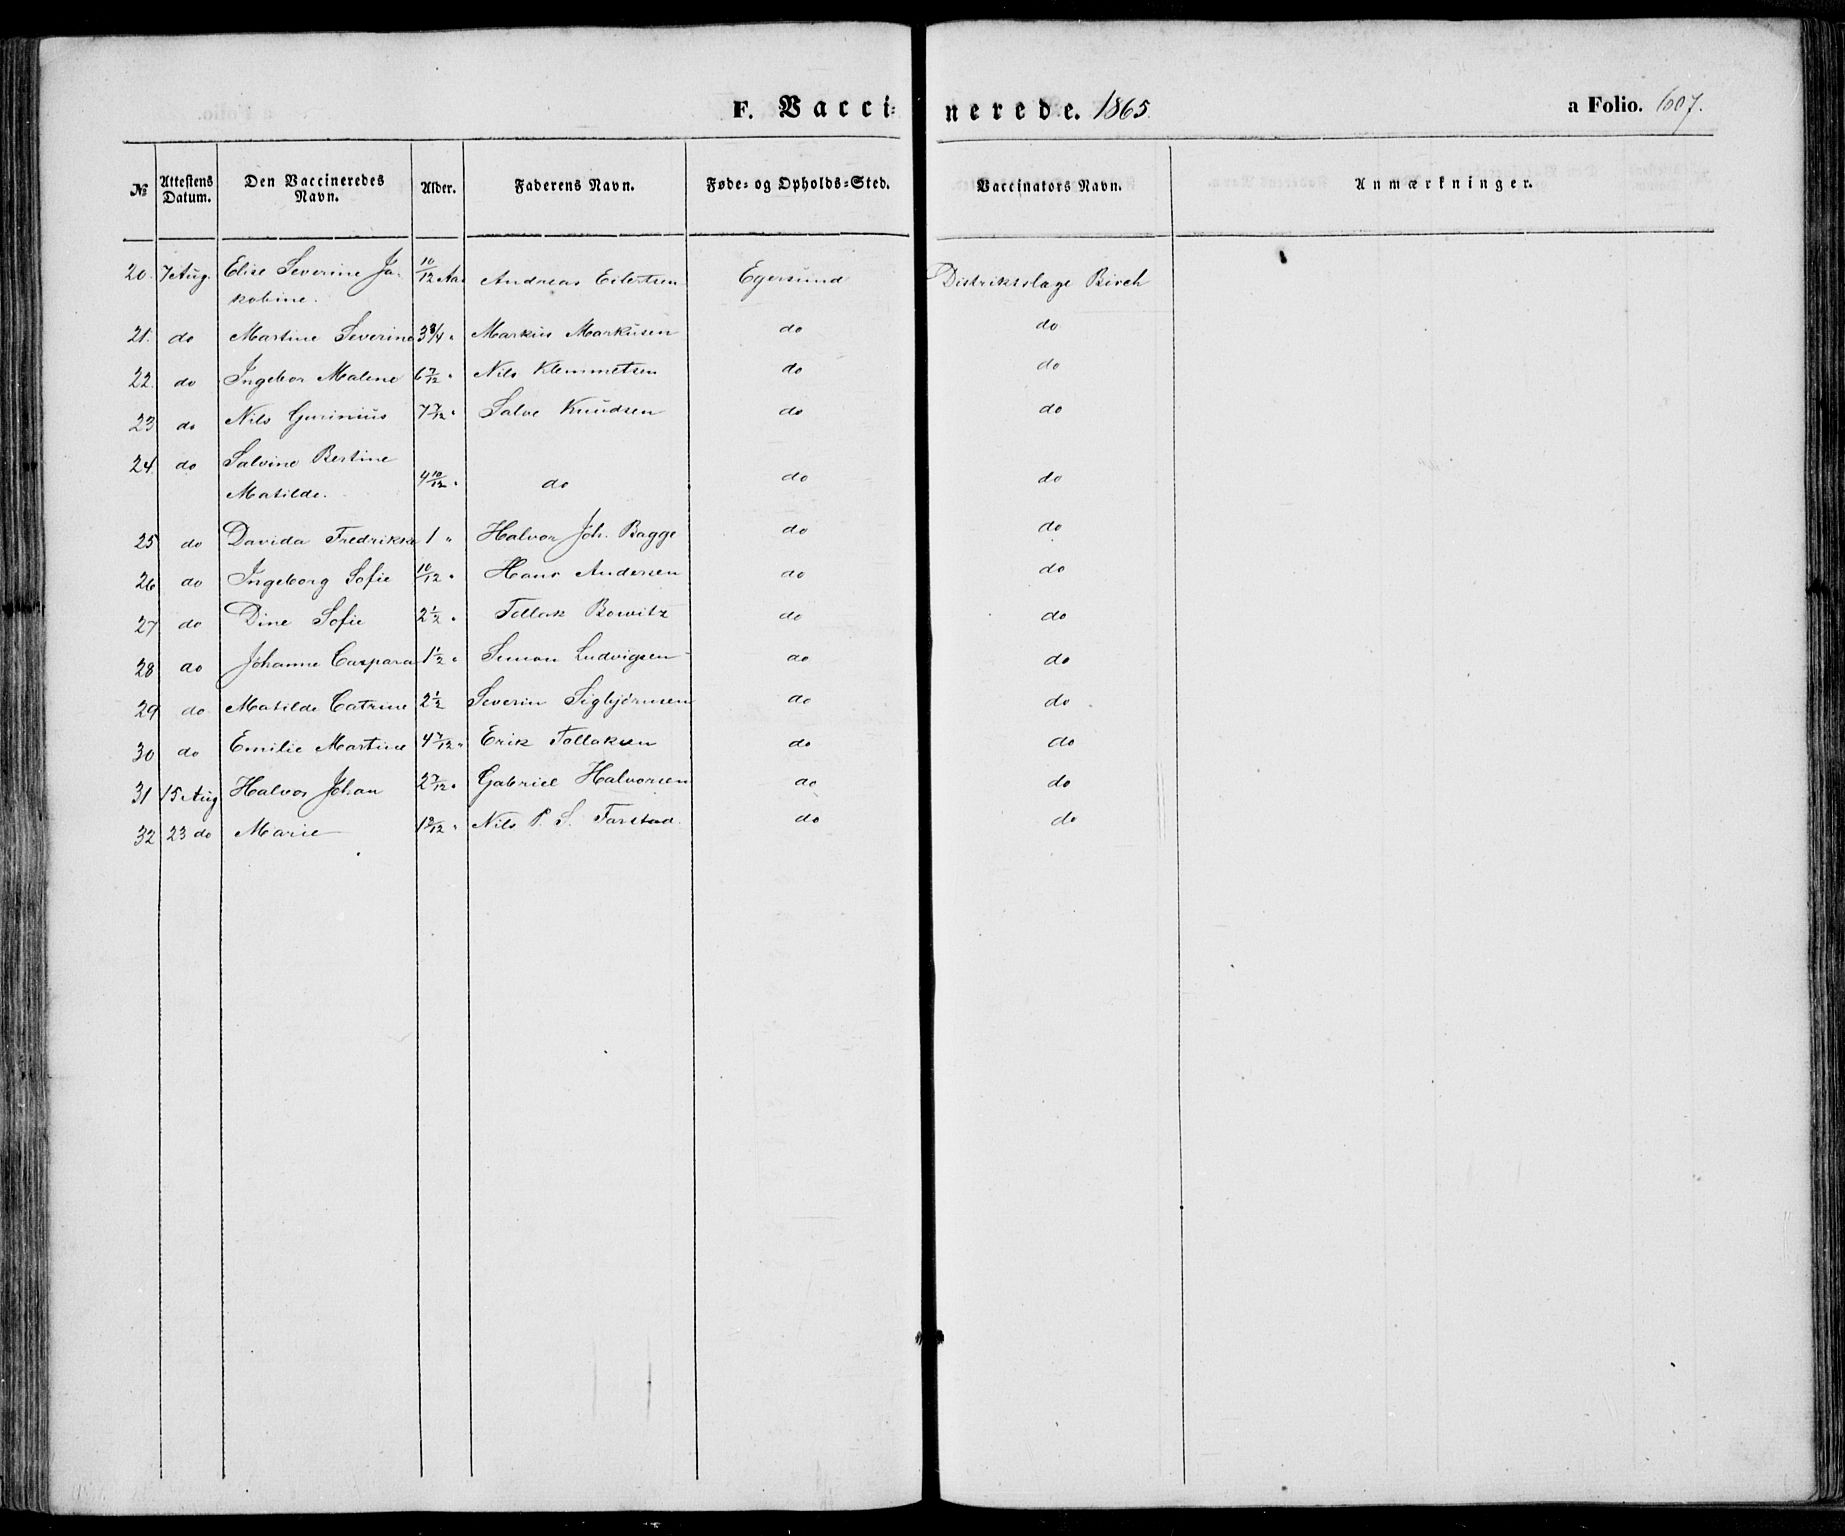 F. Vaccinerede. 1865. a Folio. 607.
№ Attestens Datum. Den Vaccineredes Navn. Alder. Faderens Navn. Føde- og Opholds-Sted. Vaccinators Navn. Anmærkninger.
20. 7 Aug. Elise Severine Ja- 10/12 Aar Andreas Eilertsen Egersund Distriktslæge Birch
kobine.
21. do Martine Severine 3 3/4 " Markus Markusen do do
22. do Ingebor Malene 6 7/12 " Nils Klemmetsen do do
23 do Nils Gurinius 7 7/12 " Salve Knudsen do do
24. do Salvine Bertine
Matilde. 4 10/12 " do do do
25 do Davida Fredrikke 1 " Halvor Joh. Bagge do do
26 do Ingeborg Sofie 10/12 " Hans Andersen do do
27 do Dine Sofie 2 1/2 " Tollak Bowitz do do
28 do Johanne Caspara 1 1/2 " Simon Ludvigsen do do
29 do Matilde Catrine 2 1/2 Severin Sigbjørnsen do do
30 do Emilie Martine 4 7/12 " Erik Tollaksen do do
31 15 Aug Halvor Johan 2 7/12 " Gabriel Halvorsen do do
32 23 do Marie 1 9/12 " Nils P. S. Farstad. do do